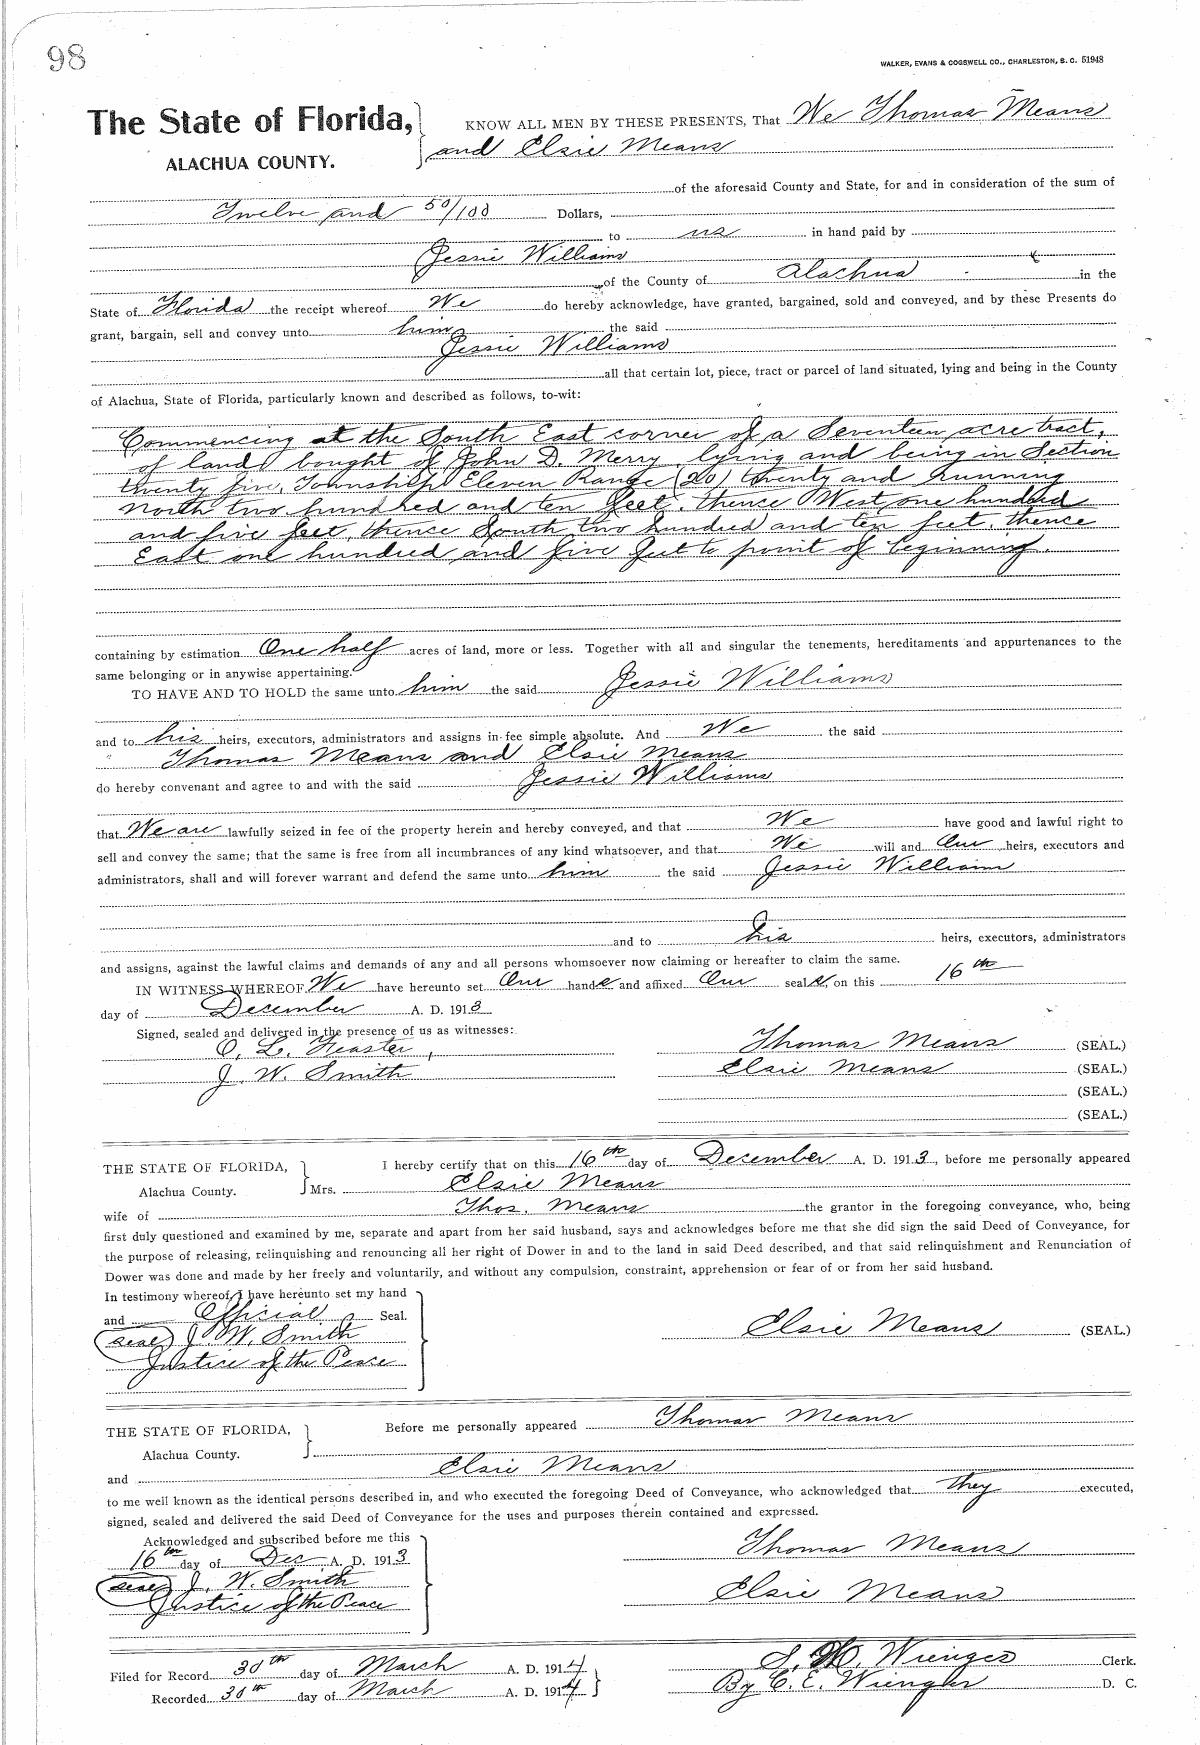 98
WALKER, EVANS & COGSWELL CO., CHARLESTON, S. C. 51948
The State of Florida,
ALACHUA COUNTY.
KNOW ALL MEN BY THESE PRESENTS, That We Thomas Means
and Elsie Means
of the aforesaid County and State, for and in consideration of the sum of
Twelve and 50/100 Dollars,
to us in hand paid by
Jessie Williams
of the County of Alachua in the
State of Florida the receipt whereof We do hereby acknowledge, have granted, bargained, sold and conveyed, and by these Presents do
grant, bargain, sell and convey unto him the said
Jessie Williams
all that certain lot, piece, tract or parcel of land situated, lying and being in the County
of Alachua, State of Florida, particularly known and described as follows, to-wit:
Commencing at the South East corner of a Seventeen acre tract,
of land bought of John D. Merry lying and being in Section
twenty five, Township Eleven Range (20) twenty and running
North two hundred and ten feet, thence West one hundred
and five feet, thence South two hundred and ten feet, thence
East one hundred and five feet to point of beginning.
containing by estimation One half acres of land, more or less. Together with all and singular the tenements, hereditaments and appurtenances to the
same belonging or in anywise appertaining.
TO HAVE AND TO HOLD the same unto him the said Jessie Williams
and to his heirs, executors, administrators and assigns in fee simple absolute. And We the said
Thomas Means and Elsie Means
do hereby convenant and agree to and with the said Jessie Williams
that We are lawfully seized in fee of the property herein and hereby conveyed, and that We have good and lawful right to
sell and convey the same; that the same is free from all incumbrances of any kind whatsoever, and that We will and Our heirs, executors and
administrators, shall and will forever warrant and defend the same unto him the said Jessie William
and to his heirs, executors, administrators
and assigns, against the lawful claims and demands of any and all persons whomsoever now claiming or hereafter to claim the same.
IN WITNESS WHEREOF We have hereunto set Our hands and affixed Our seals, on this 16th
day of December A. D. 1913
Signed, sealed and delivered in the presence of us as witnesses:
O. L. Feaster,
J. W. Smith
Thomas Means (SEAL.)
Elsie Means (SEAL.)
(SEAL.)
(SEAL.)
THE STATE OF FLORIDA,
Alachua County.
I hereby certify that on this 16th day of December A. D. 1913, before me personally appeared
Mrs. Elsie Means
wife of Thos. Means the grantor in the foregoing conveyance, who, being
first duly questioned and examined by me, separate and apart from her said husband, says and acknowledges before me that she did sign the said Deed of Conveyance, for
the purpose of releasing, relinquishing and renouncing all her right of Dower in and to the land in said Deed described, and that said relinquishment and Renunciation of
Dower was done and made by her freely and voluntarily, and without any compulsion, constraint, apprehension or fear of or from her said husband.
In testimony whereof, I have hereunto set my hand
and Official Seal.
(seal) J. W. Smith
Justice of the Peace
Elsie Means (SEAL.)
THE STATE OF FLORIDA,
Alachua County.
Before me personally appeared Thomas Means
and Elsie Means
to me well known as the identical persons described in, and who executed the foregoing Deed of Conveyance, who acknowledged that they executed,
signed, sealed and delivered the said Deed of Conveyance for the uses and purposes therein contained and expressed.
Acknowledged and subscribed before me this
16th day of Dec A. D. 1913
(seal) J. W. Smith
Justice of the Peace
Thomas Means
Elsie Means
Filed for Record 30th day of March A. D. 1914
Recorded 30th day of March A. D. 1914
S. H. Wienges Clerk.
By C. C. Wienges D. C.